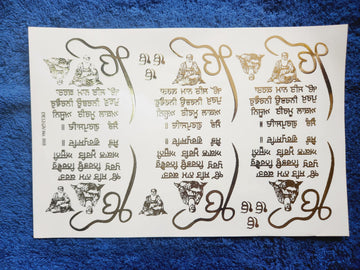 ੴ
ੴ ਸਤਿ ਨਾਮੁ ਕਰਤਾ
ਪੁਰਖੁ ਨਿਰਭਉ ਨਿਰਵੈਰੁ
ਅਕਾਲ ਮੂਰਤਿ ਅਜੂਨੀ
ਸੈਭੰ ਗੁਰਪ੍ਰਸਾਦਿ ॥
ੴ
ੴ
ੴ
ੴ
ੴ ਸਤਿ ਨਾਮੁ ਕਰਤਾ
ਪੁਰਖੁ ਨਿਰਭਉ ਨਿਰਵੈਰੁ
ਅਕਾਲ ਮੂਰਤਿ ਅਜੂਨੀ
ਸੈਭੰ ਗੁਰਪ੍ਰਸਾਦਿ ॥
ੴ
ੴ ਸਤਿ ਨਾਮੁ ਕਰਤਾ
ਪੁਰਖੁ ਨਿਰਭਉ ਨਿਰਵੈਰੁ
ਅਕਾਲ ਮੂਰਤਿ ਅਜੂਨੀ
ਸੈਭੰ ਗੁਰਪ੍ਰਸਾਦਿ ॥
ੴ
ੴ ਸਤਿ ਨਾਮੁ ਕਰਤਾ
ਪੁਰਖੁ ਨਿਰਭਉ ਨਿਰਵੈਰੁ
ਅਕਾਲ ਮੂਰਤਿ ਅਜੂਨੀ
ਸੈਭੰ ਗੁਰਪ੍ਰਸਾਦਿ ॥
ੴ
ੴ ਸਤਿ ਨਾਮੁ ਕਰਤਾ
ਪੁਰਖੁ ਨਿਰਭਉ ਨਿਰਵੈਰੁ
ਅਕਾਲ ਮੂਰਤਿ ਅਜੂਨੀ
ਸੈਭੰ ਗੁਰਪ੍ਰਸਾਦਿ ॥
ੴ
ੴ
ੴ
ੴ
ੴ ਸਤਿ ਨਾਮੁ ਕਰਤਾ
ਪੁਰਖੁ ਨਿਰਭਉ ਨਿਰਵੈਰੁ
ਅਕਾਲ ਮੂਰਤਿ ਅਜੂਨੀ
ਸੈਭੰ ਗੁਰਪ੍ਰਸਾਦਿ ॥